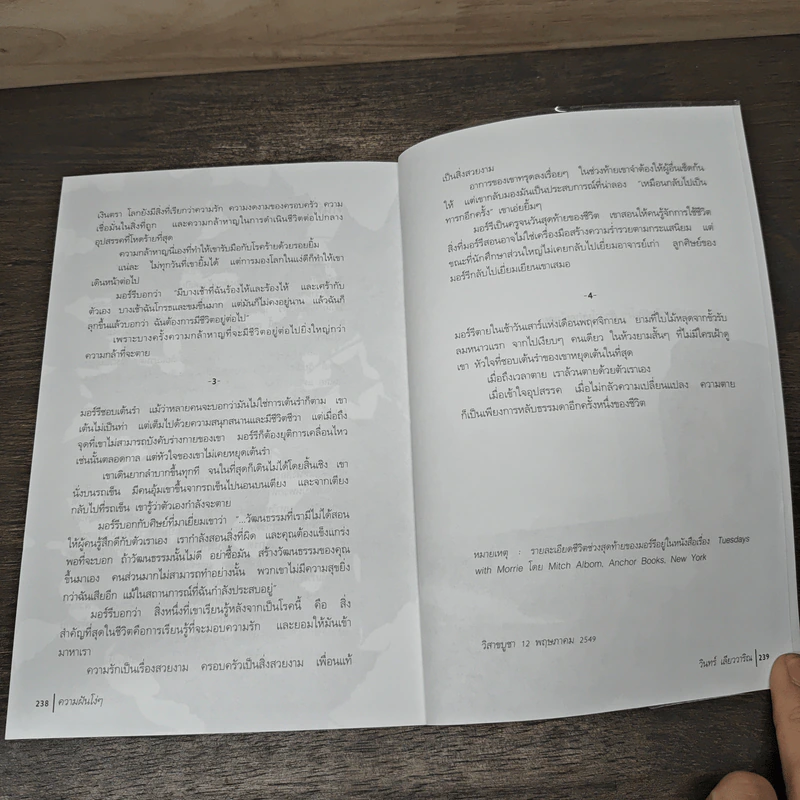 เงินตรา โลกยังมีสิ่งที่เรียกว่าความรัก ความงดงามของครอบครัว ความ
เชื่อมั่นในสิ่งที่ถูก และความกล้าหาญในการดำเนินชีวิตต่อไปกลาง
อุปสรรคที่โหดร้ายที่สุด
ความกล้าหาญนี่เองที่ทำให้เขารับมือกับโรคร้ายด้วยรอยยิ้ม
แน่ละ ไม่ทุกวันที่เขายิ้มได้ แต่การมองโลกในแง่ดีก็ทำให้เขา
เดินหน้าต่อไป
มอร์รีบอกว่า "มีบางเช้าที่ฉันร้องไห้และร้องไห้ และเศร้ากับ
ตัวเอง บางเช้าฉันโกรธและขมขื่นมาก แต่มันก็ไม่คงอยู่นาน แล้วฉันก็
ลุกขึ้นแล้วบอกว่า ฉันต้องการมีชีวิตอยู่ต่อไป"
เพราะบางครั้งความกล้าหาญที่จะมีชีวิตอยู่ต่อไปยิ่งใหญ่กว่า
ความกล้าที่จะตาย
-3-
มอร์รีชอบเต้นรำ แม้ว่าหลายคนจะบอกว่ามันไม่ใช่การเต้นรำก็ตาม เขา
เต้นไม่เป็นท่า แต่เต็มไปด้วยความสนุกสนานและมีชีวิตชีวา แต่เมื่อถึง
จุดที่เขาไม่สามารถบังคับร่างกายของเขา มอร์รีก็ต้องยุติการเคลื่อนไหว
เช่นนั้นตลอดกาล แต่หัวใจของเขาไม่เคยหยุดเต้นรำ
เขาเดินยากลำบากขึ้นทุกที จนในที่สุดก็เดินไม่ได้โดยสิ้นเชิง เขา
นั่งบนรถเข็น มีคนอุ้มเขาขึ้นจากรถเข็นไปนอนบนเตียง และจากเตียง
กลับไปที่รถเข็น เขารู้ว่าตัวเองกำลังจะตาย
มอร์รีบอกกับศิษย์ที่มาเยี่ยมเขาว่า "...วัฒนธรรมที่เรามีไม่ได้สอน
ให้ผู้คนรู้สึกดีกับตัวเราเอง เรากำลังสอนสิ่งที่ผิด และคุณต้องแข็งแกร่ง
พอที่จะบอก ถ้าวัฒนธรรมนั้นไม่ดี อย่าซื้อมัน สร้างวัฒนธรรมของคุณ
ขึ้นมาเอง คนส่วนมากไม่สามารถทำอย่างนั้น พวกเขาไม่มีความสุขยิ่ง
กว่าฉันเสียอีก แม้ในสถานการณ์ที่ฉันกำลังประสบอยู่"
มอร์รีบอกว่า สิ่งหนึ่งที่เขาเรียนรู้หลังจากเป็นโรคนี้ คือ สิ่ง
สำคัญที่สุดในชีวิตคือการเรียนรู้ที่จะมอบความรัก และยอมให้มันเข้า
มาหาเรา
ความรักเป็นเรื่องสวยงาม ครอบครัวเป็นสิ่งสวยงาม เพื่อนแท้
238 ความฝันโง่ๆ
เป็นสิ่งสวยงาม
อาการของเขาทรุดลงเรื่อยๆ ในช่วงท้ายเขาจำต้องให้ผู้อื่นเช็ดก้น
ให้ แต่เขากลับมองมันเป็นประสบการณ์ที่น่าลอง "เหมือนกลับไปเป็น
ทารกอีกครั้ง" เขาเอ่ยยิ้มๆ
มอร์รีเป็นครูจนวันสุดท้ายของชีวิต เขาสอนให้คนรู้จักการใช้ชีวิต
สิ่งที่มอร์รีสอนอาจไม่ใช่เครื่องมือสร้างความร่ำรวยตามกระแสนิยม แต่
ขณะที่นักศึกษาส่วนใหญ่ไม่เคยกลับไปเยี่ยมอาจารย์เก่า ลูกศิษย์ของ
มอร์รีกลับไปเยี่ยมเยียนเขาเสมอ
-4-
มอร์รีตายในเช้าวันเสาร์แห่งเดือนพฤศจิกายน ยามที่ใบไม้หลุดจากขั้วรับ
ลมหนาวแรก จากไปเงียบๆ คนเดียว ในห้วงยามสั้นๆ ที่ไม่มีใครเฝ้าดู
เขา หัวใจที่ชอบเต้นรำของเขาหยุดเต้นในที่สุด
เมื่อถึงเวลาตาย เราล้วนตายด้วยตัวเราเอง
เมื่อเข้าใจอุปสรรค เมื่อไม่กลัวความเปลี่ยนแปลง ความตาย
ก็เป็นเพียงการหลับธรรมดาอีกครั้งหนึ่งของชีวิต
หมายเหตุ : รายละเอียดชีวิตช่วงสุดท้ายของมอร์รีอยู่ในหนังสือเรื่อง Tuesdays
with Morrie โดย Mitch Albom, Anchor Books, New York
วิสาขบูชา 12 พฤษภาคม 2549
วินทร์ เลียววาริณ 239